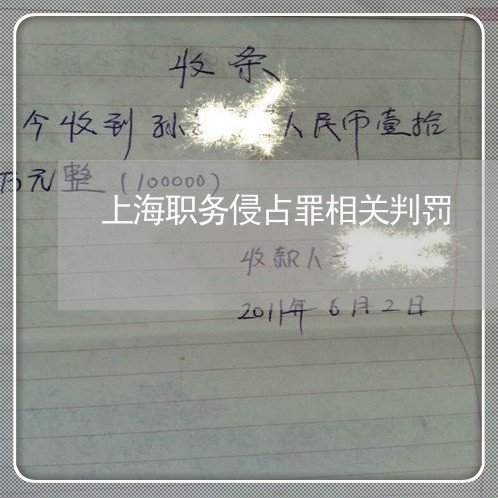 收条
今收到孙 人民币壹拾
万元整（100000）
上海职务侵占罪相关判罚
收款人
2011年6月2日